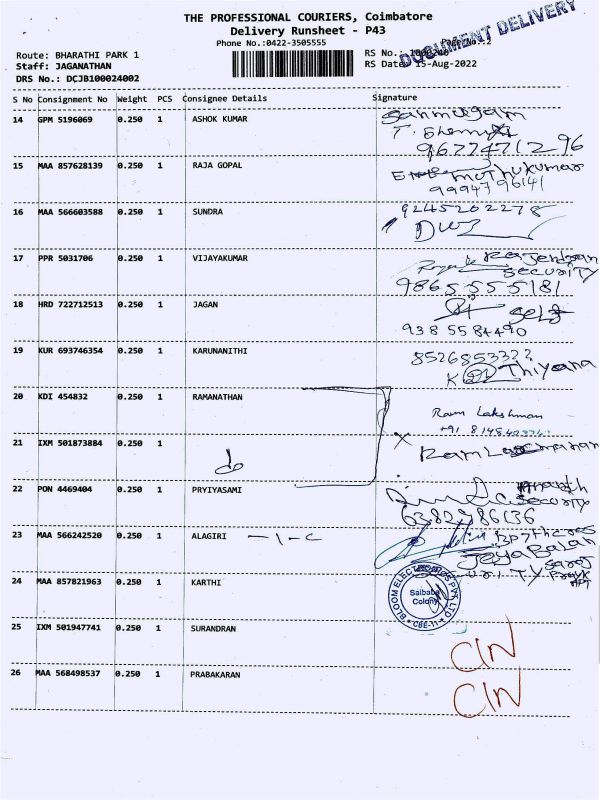 THE PROFESSIONAL COURIERS, Coimbatore
Delivery Runsheet - P43
DOCUMENT DELIVERY
Phone No.:0422-3505555
Page No.:2
Route: BHARATHI PARK 1
RS No.:
Staff: JAGANATHAN
RS Date: 15-Aug-2022
DRS No.: DCJB100024002
S No Consignment No Weight PCS Consignee Details Signature
14 GPM 5196069 0.250 1 ASHOK KUMAR
Sanmugam
9677471296
15 MAA 857628139 0.250 1 RAJA GOPAL
muthukumar
9994796141
16 MAA 566603588 0.250 1 SUNDRA
9245202278
17 PPR 5031706 0.250 1 VIJAYAKUMAR
Rajendran
security
9865555181
18 HRD 722712513 0.250 1 JAGAN
Self
9385584490
19 KUR 693746354 0.250 1 KARUNANITHI
8526853322
20 KDI 454832 0.250 1 RAMANATHAN
Ram Lakshman
21 IXM 501873884 0.250 1
do
22 PON 4469404 0.250 1 PRYIYASAMI
security
6382986136
23 MAA 566242520 0.250 1 ALAGIRI
JeyaBalan
24 MAA 857821963 0.250 1 KARTHI
BLOOM ELECTRONICS PVT. LTD
Saibaba
Colony
CBE-11
25 IXM 501947741 0.250 1 SURANDRAN
CIN
26 MAA 568498537 0.250 1 PRABAKARAN
CIN